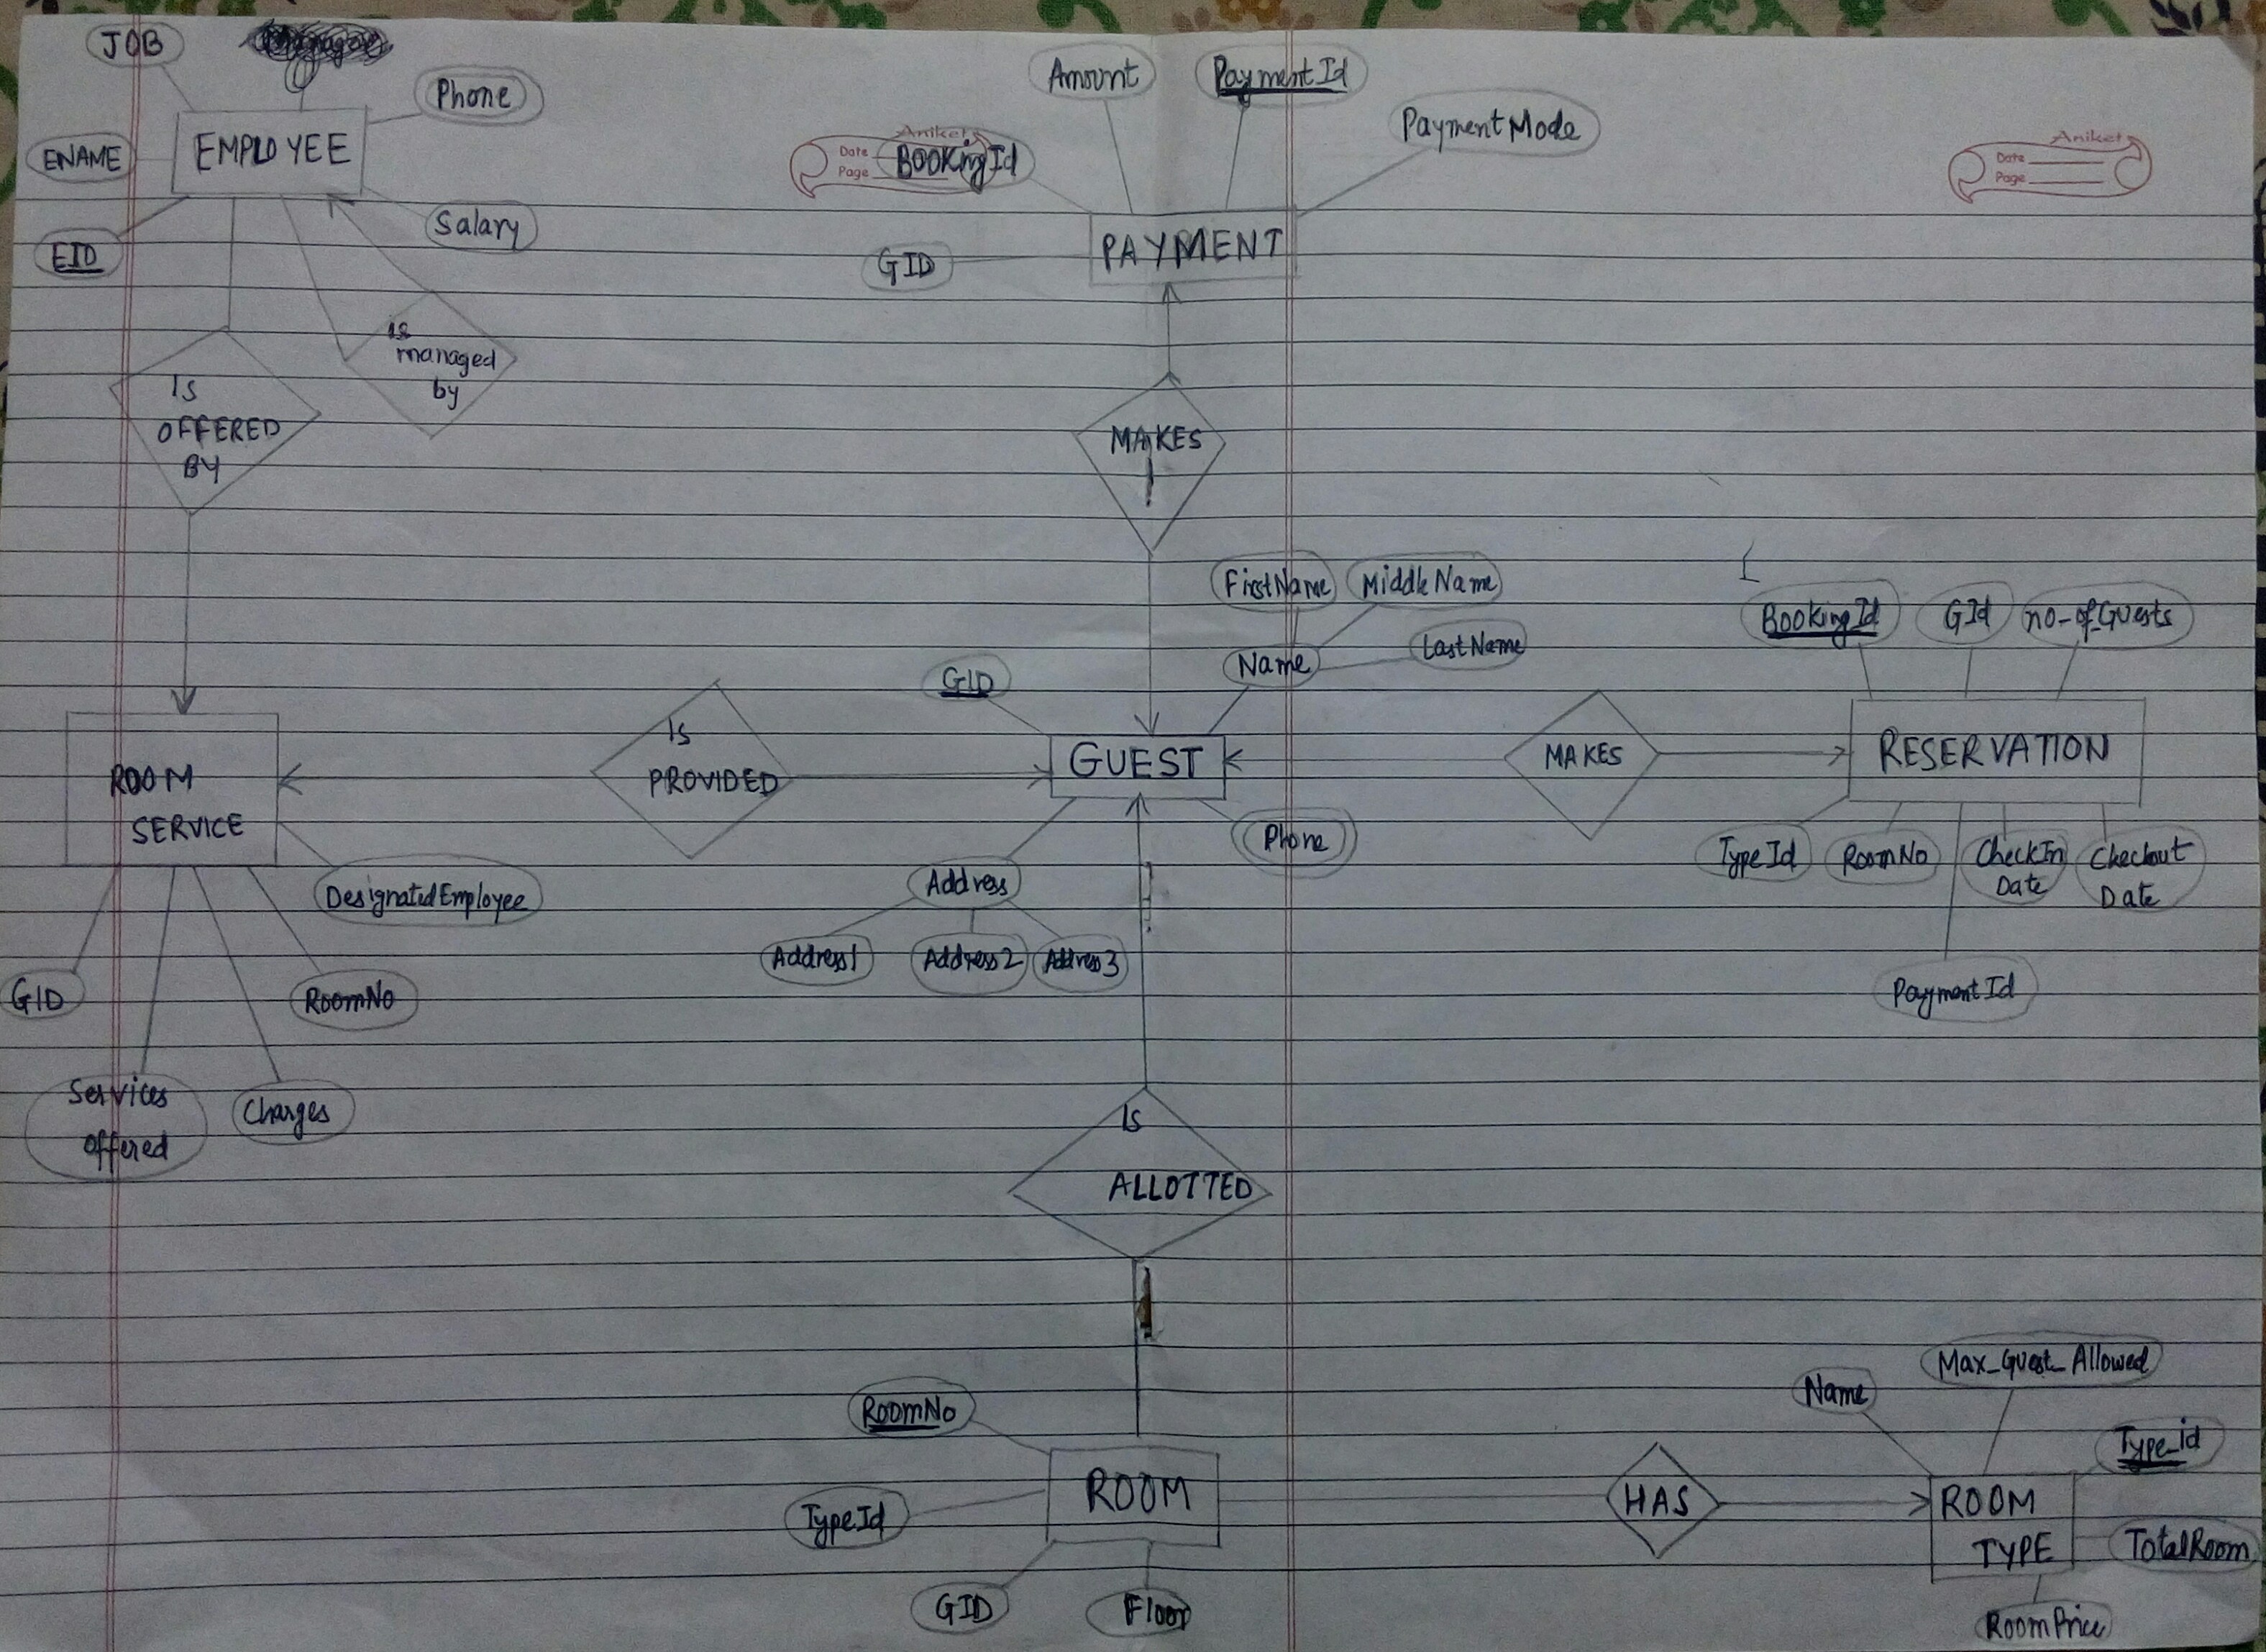 JOB
Phone
EMPLOYEE
ENAME
Salary
EID
is
managed
by
Is
OFFERED
BY
Amount
PaymentId
PaymentMode
Aniket
Date
Page
BOOKingId
PAYMENT
GID
Aniket
Date
Page
MAKES
FirstName
MiddleName
LastName
Name
GID
GUEST
Phone
Address
Address1
Address2
Address3
Is
PROVIDED
ROOM
SERVICE
DesignatedEmployee
GID
RoomNo
Services
offered
Charges
MAKES
BookingId
GId
no_of_Guests
RESERVATION
TypeId
RoomNo
CheckIn
Date
Checkout
Date
PaymentId
Is
ALLOTTED
RoomNo
ROOM
TypeId
GID
Floor
HAS
Name
Max_Guest_Allowed
Type_id
ROOM
TYPE
TotalRoom
RoomPrice